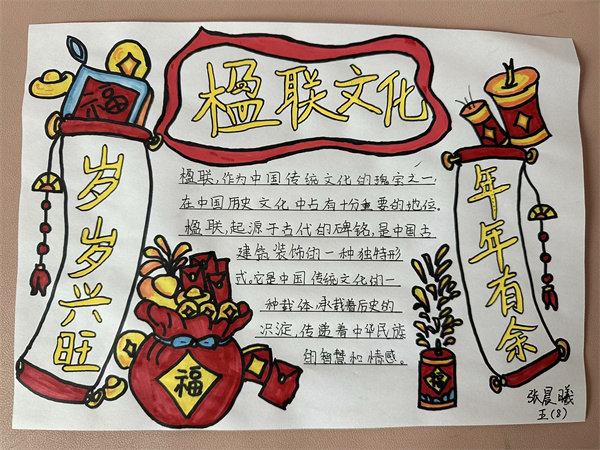 楹联文化
福
岁岁兴旺
年年有余
楹联,作为中国传统文化的瑰宝之一,
在中国历史文化中占有十分重要的地位。
楹联,起源于古代的碑铭,是中国古
建筑装饰的一种独特形
式。它是中国传统文化的一
种载体,承载着历史的
沉淀,传递着中华民族
的智慧和情感。
福
福
张晨曦
五(8)